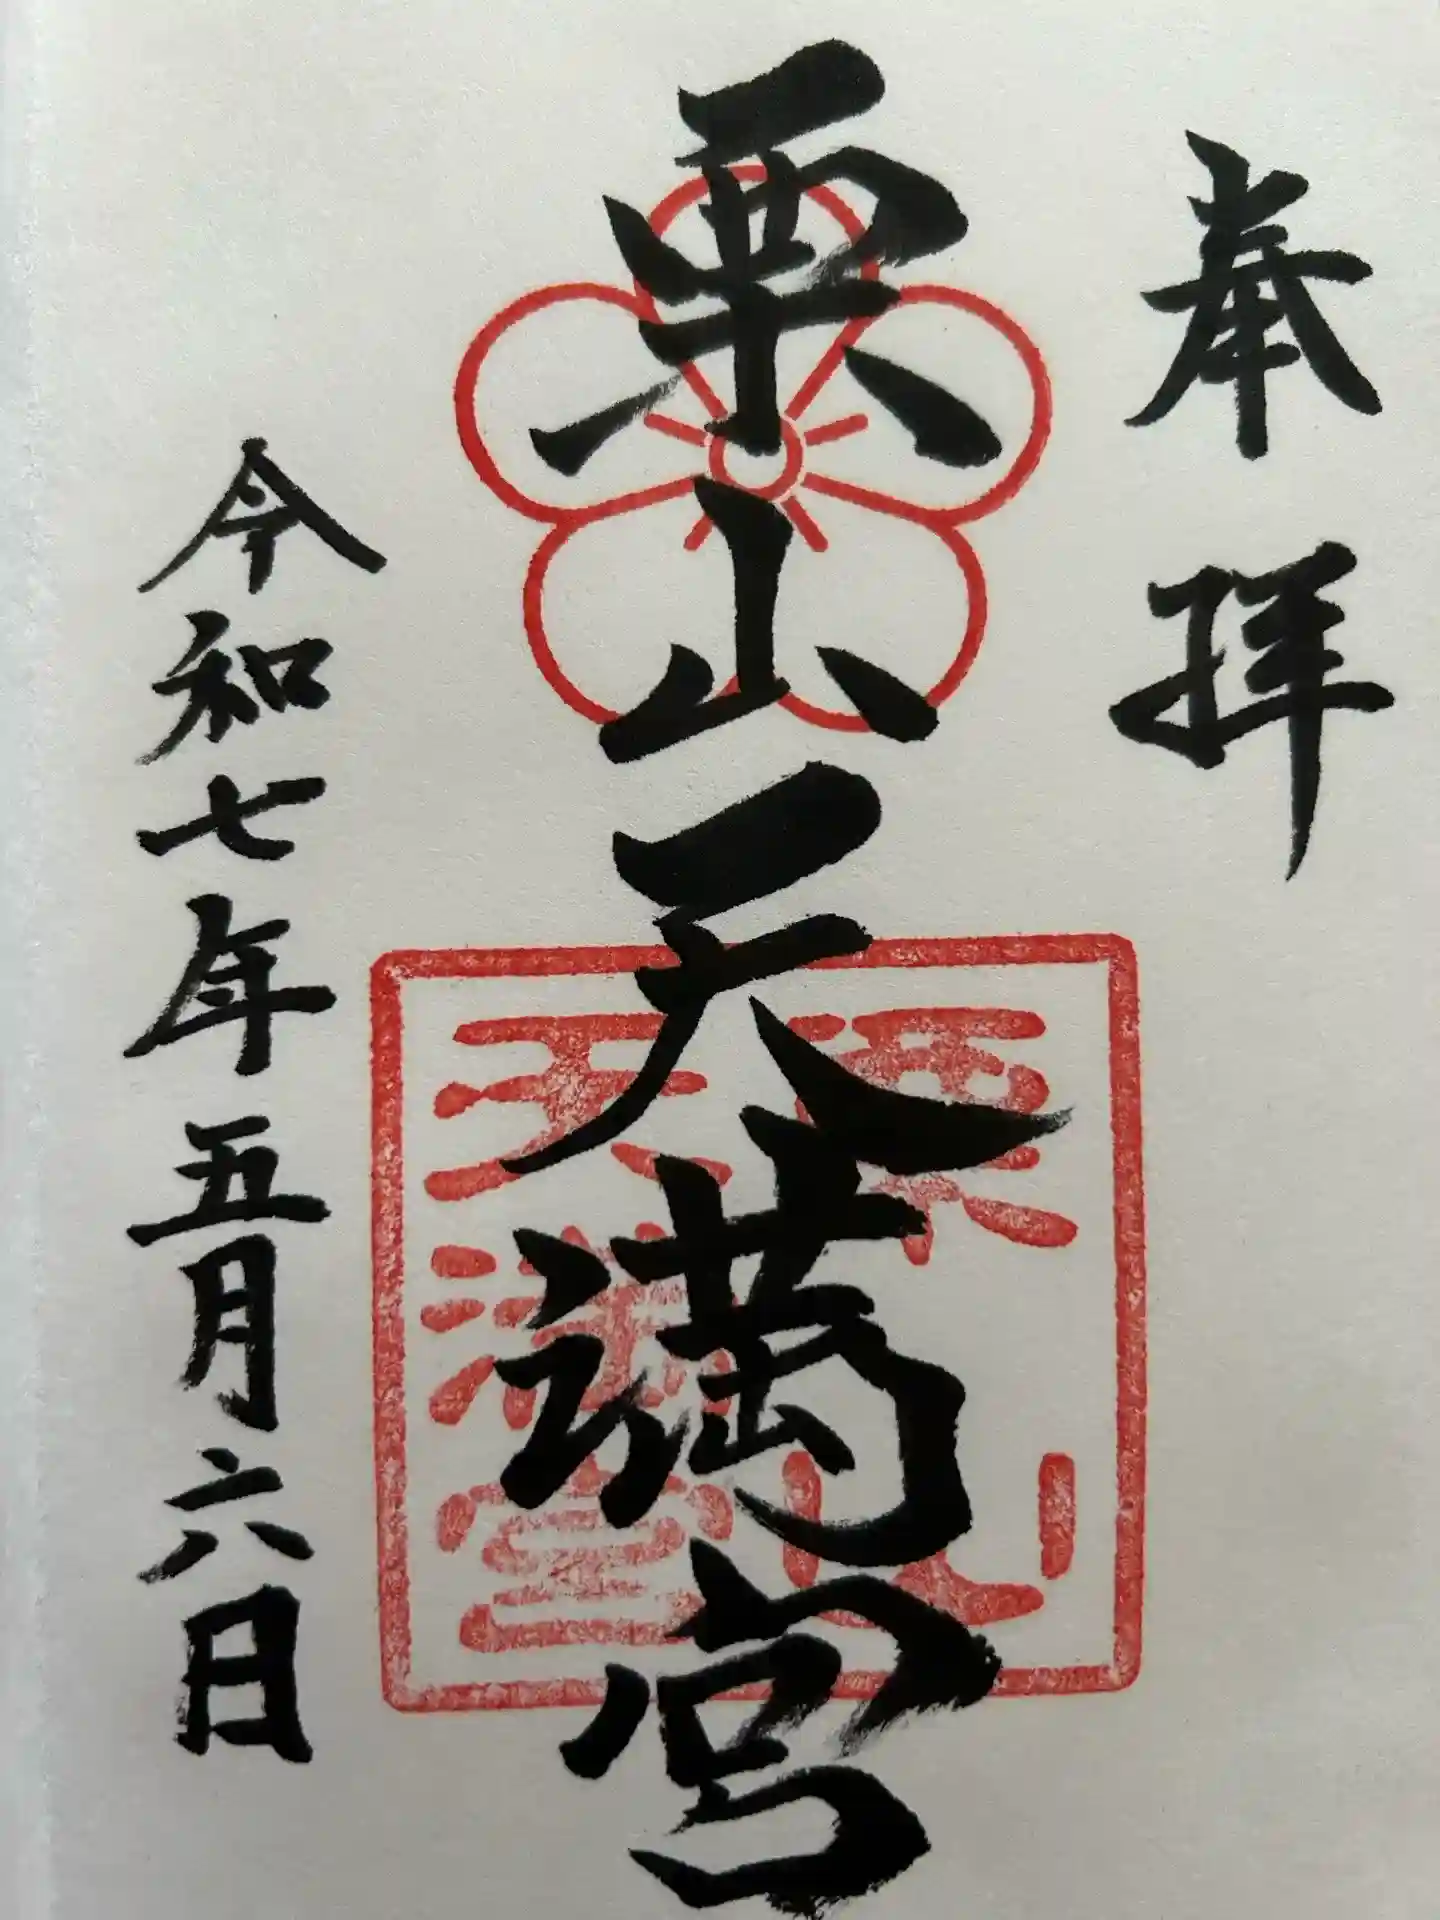 奉拝
栗山天満宮
栗山
天満宮
令和七年五月六日